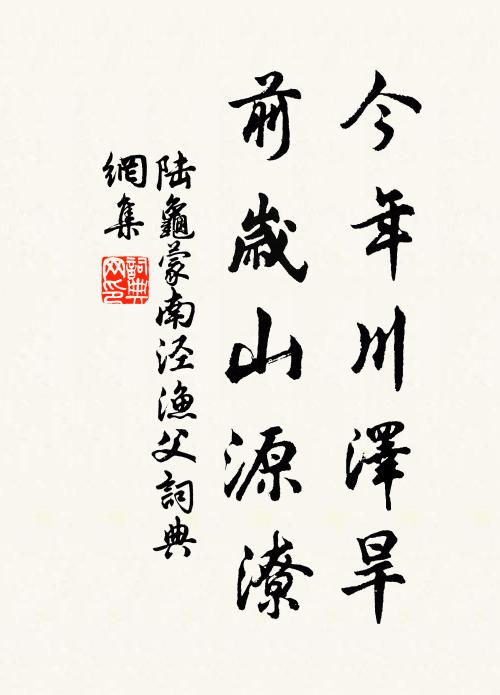 今年川澤旱
前歲山源潦
陆龜蒙南泾漁父詞典
網集
詞典
网印